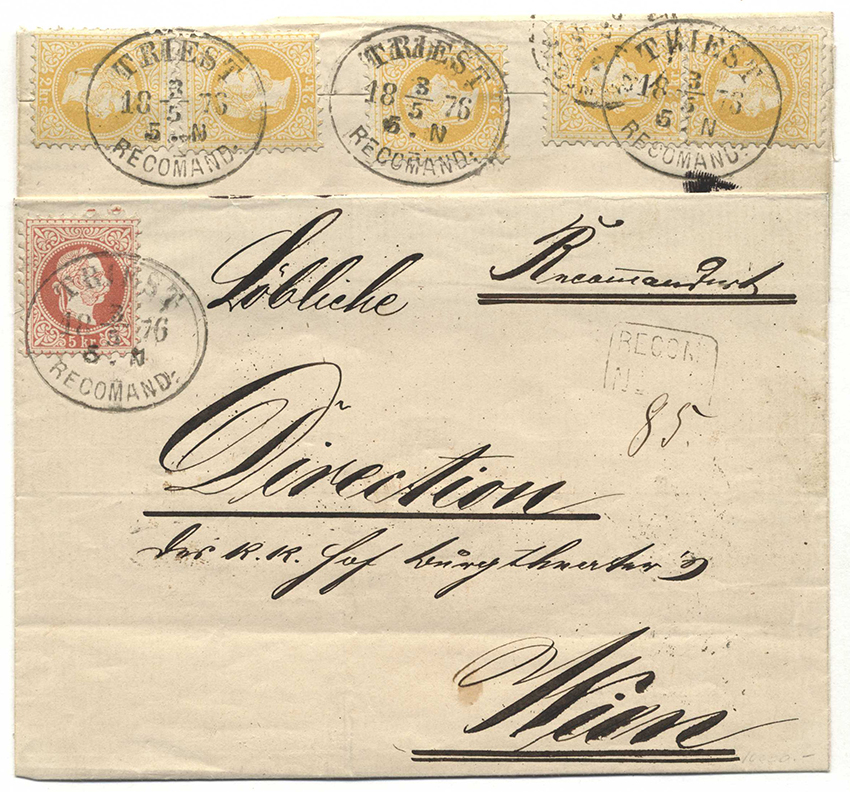 TRIEST
18 3/5 76
5. N
RECOMAND:
TRIEST
18 3/5 76
5. N
RECOMAND:
TRIEST
18 3/5 76
5. N
RECOMAND:
2 kr.
TRIEST
18 3/5 76
5. N
RECOMAND:
5 kr.
Löbliche
Recomandirt
RECOM.
N
85.
Direction
des k.k. Hof Burgtheater's
Wien